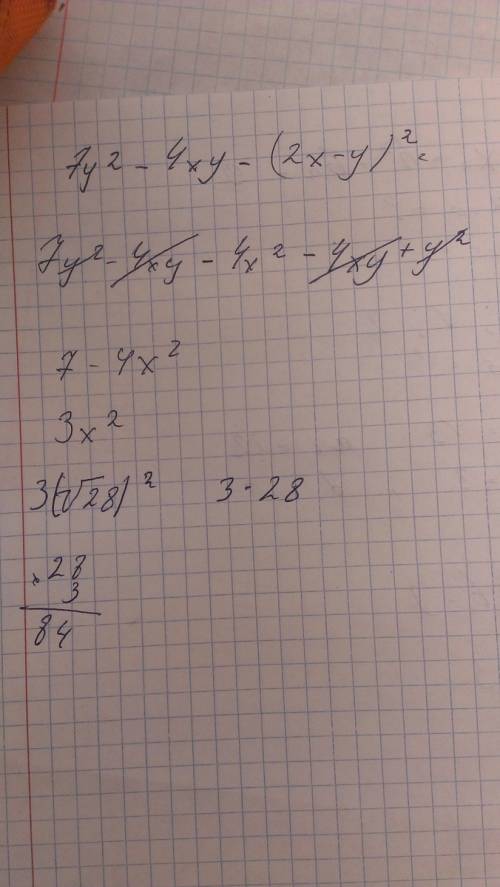 7y² - 4xy - (2x-y)² =
7y² - 4xy - 4x² - 4xy + y²
7 - 4x²
3x²
3(-√28)² 3·28
×28
3
84